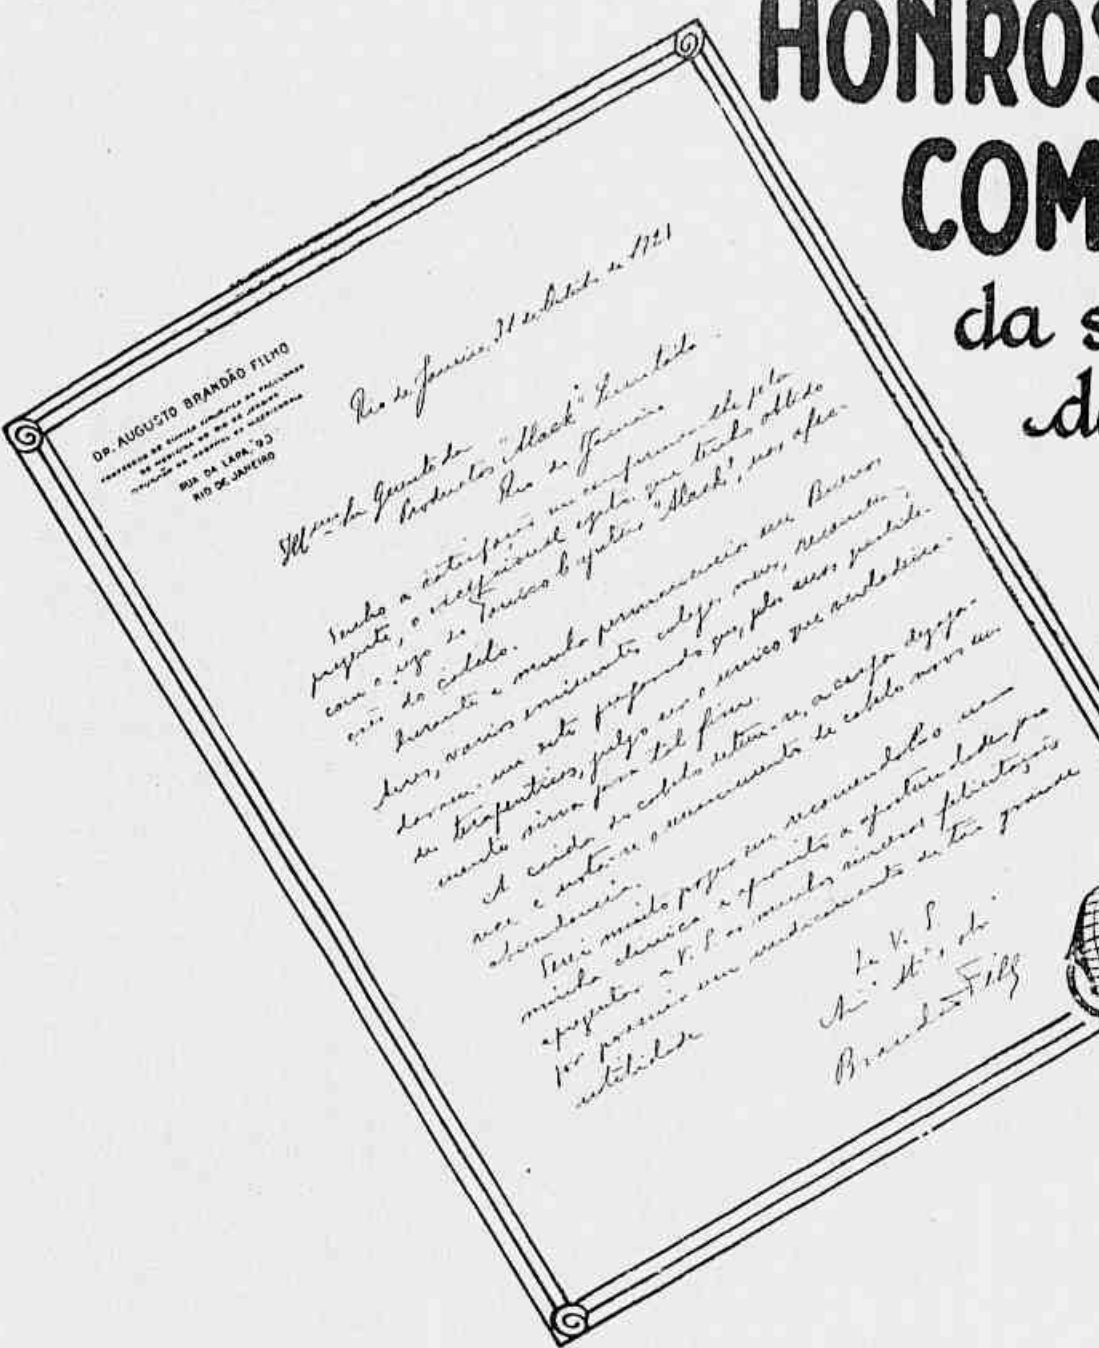 HONROS
COM
da s
da
DR. AUGUSTO BRANDÃO FILHO
PROFESSOR DE CLINICA CIRURGICA DA FACULDADE
DE MEDICINA DO RIO DE JANEIRO
CIRURGIÃO DO HOSPITAL DA MISERICORDIA
RUA DA LAPA, 93
RIO DE JANEIRO
Rio de Janeiro, 31 de Outubro de 1921
Gerente da
Productos "Alack" Limitada
Rio de Janeiro
Tenho a satisfação em confirmar-lhe pela
prezente, o excepcional exito que tenho obtido
com o uzo do Tonico Capilar "Alack", nas afec-
ções do cabelo.
Durante a minha permanencia em Buenos
Aires, varios eminentes colegas meus, recomen-
daram-me este preparado que, pelas suas qualida-
des terapeuticas, julgo ser o unico que verdadeira-
mente sirva para tal fim.
A caida do cabelo detem-se, a caspa dezapa-
rece e nota-se o nascimento de cabelo novo em
abundancia.
Terei muito prazer em recomendal-o em
minha clinica e aproveito a oportunidade para
aprezentar a V. S. as minhas sinceras felicitações
por possuir um medicamento de tão grande
utilidade
De V. S.
Brandão Filho